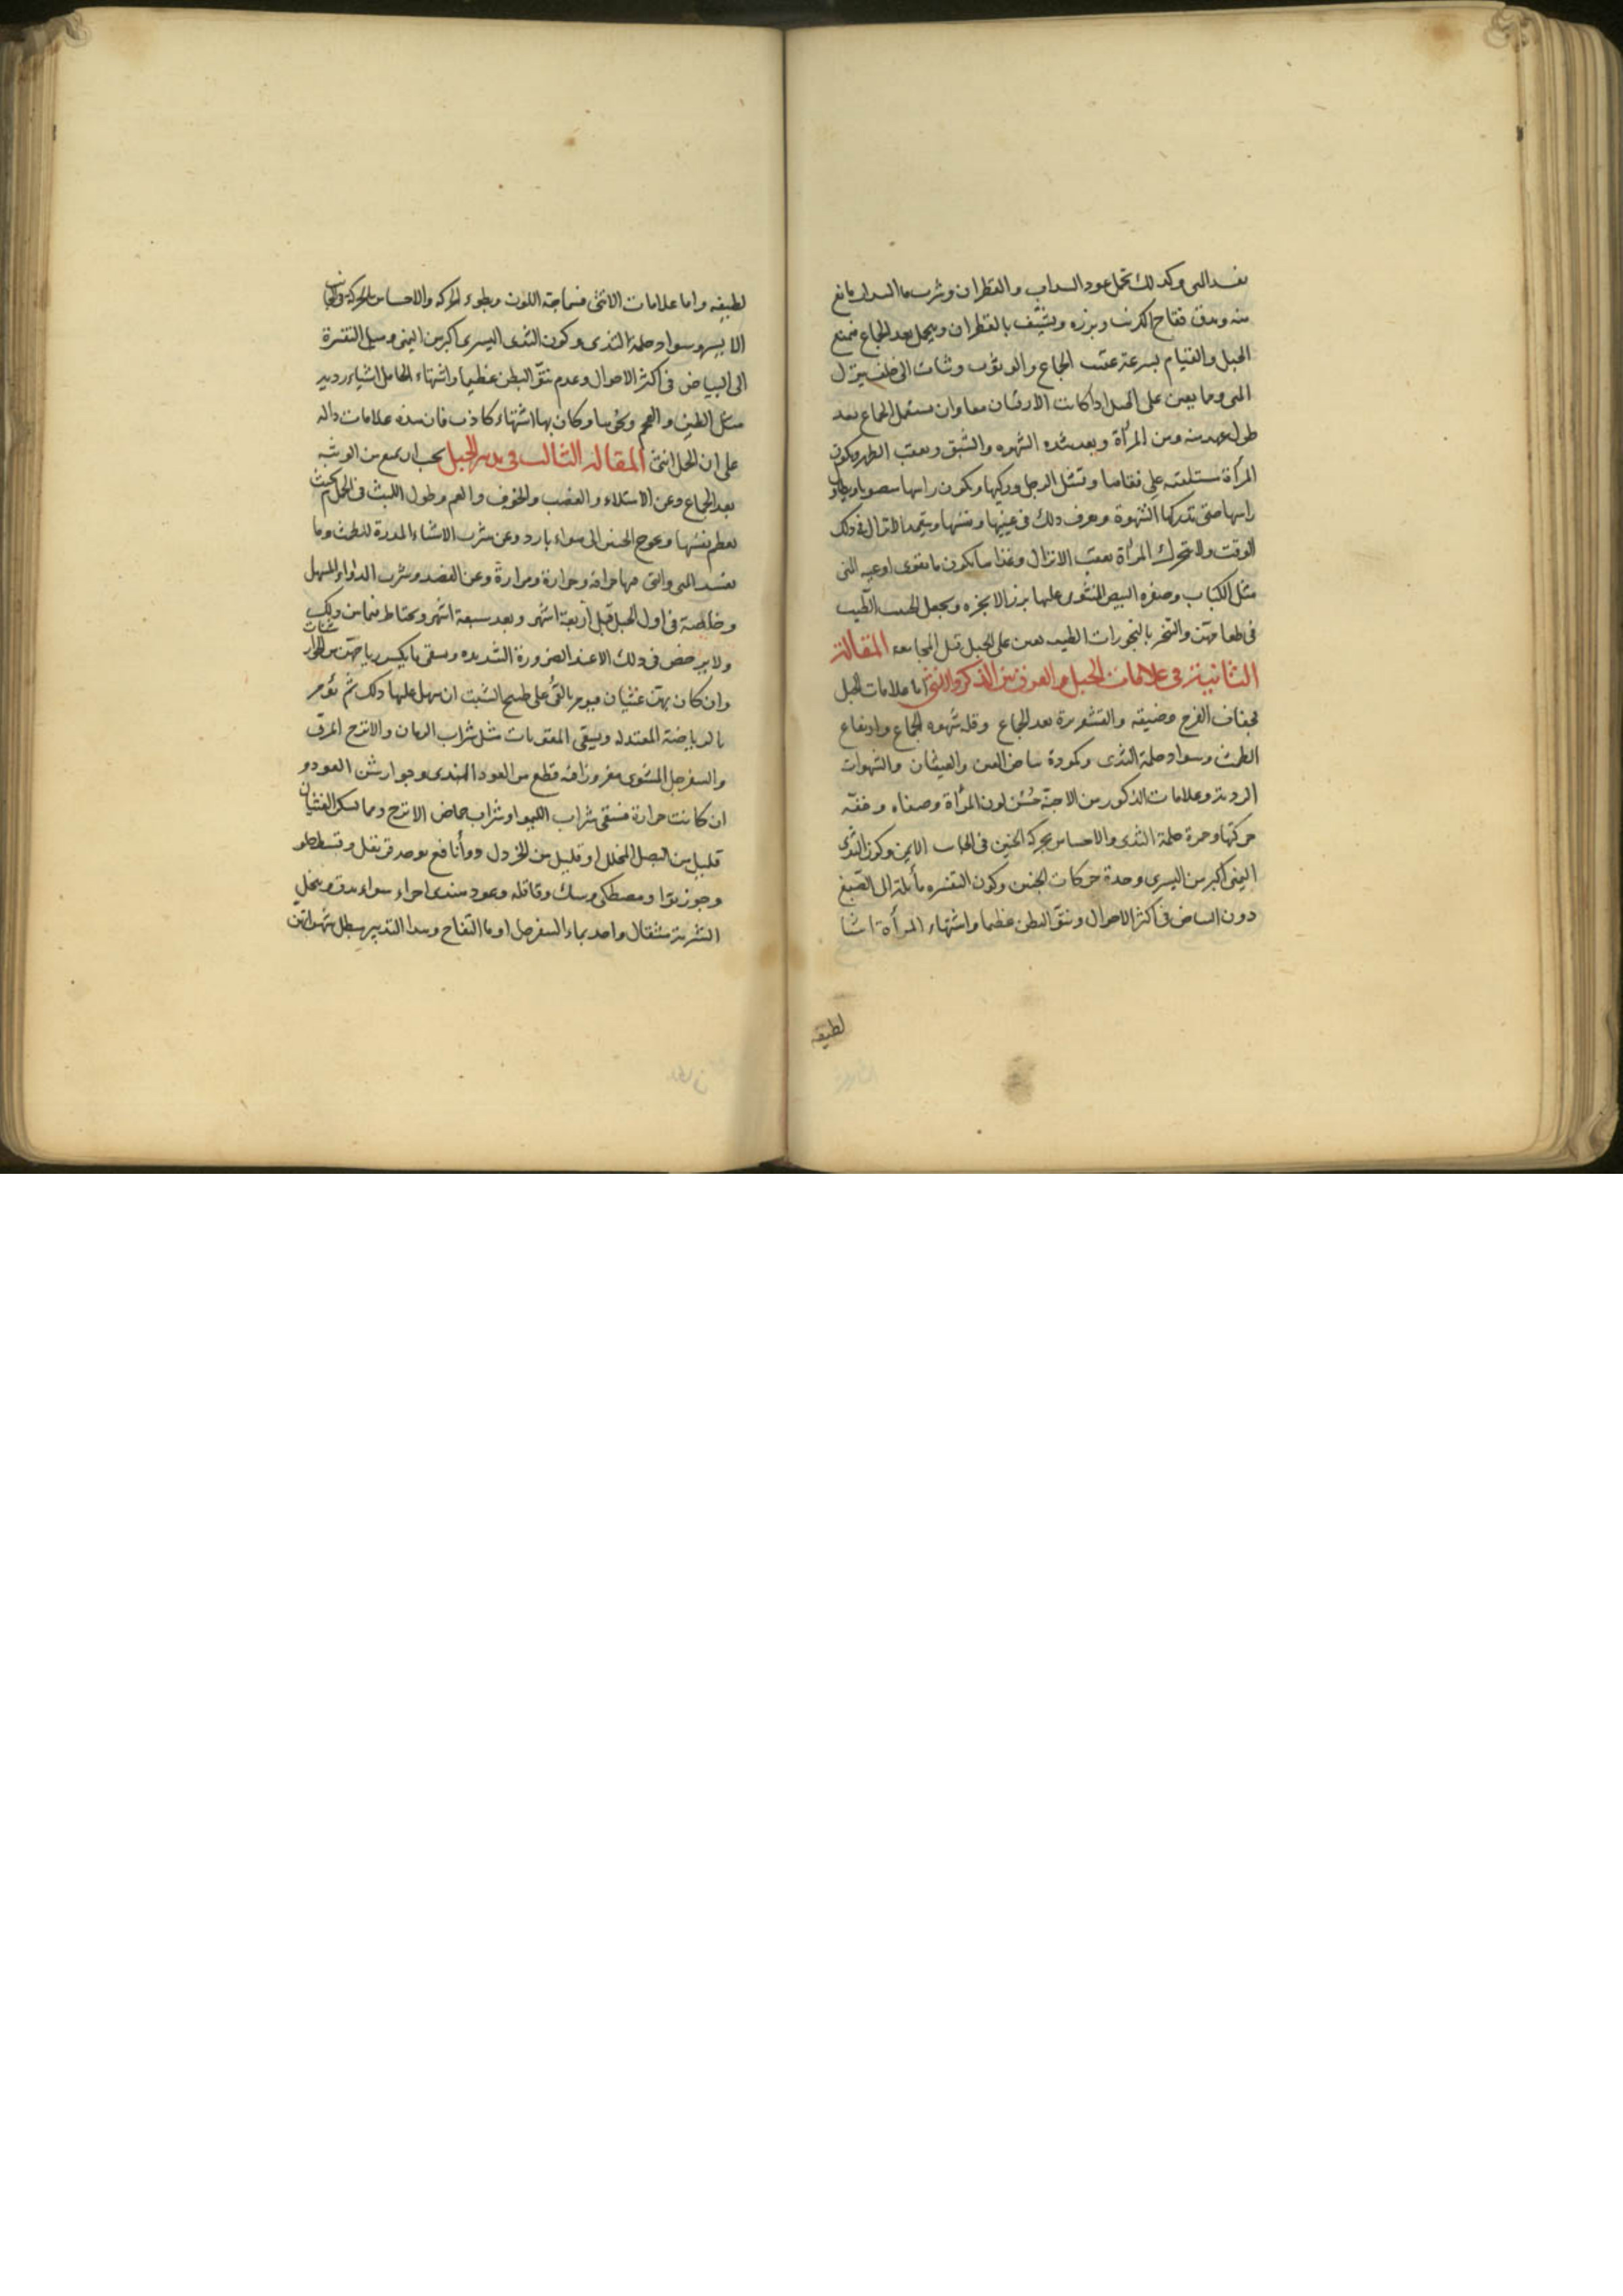 يفسد المنى وكذلك تحمل عود السداب والقطران وشرب ماء السداب مانع
منه ويدق فقاح الكرنب وبزره وينشف بالقطران ويحمل بعد الجماع فيمنع
الحبل والقيام بسرعة عقب الجماع والوثوب وثبات الى خلف يزل
المنى ومما يعين على الحبل اذا كانت الارقان معا وان يستعمل الجماع بعد
طول عهد منه ومن المرأة وبعد شدة الشهوه والشبق وبعقب الطهر وتكون
المرأة مستلقية على قفاها وتشل الرجل وركيها ويكون راسها مصوبا
راسها حتى تدركها الشهوة ويعرف ذلك في عينيها ونفسها ويتعمد الانزال في ذلك
الوقت ولا تتحرك المرأة بعقب الانزال وغذاها يكون ما يقوى اوعيه المنى
مثل الكباب وصفره البيض المشوى عليها بزر الانجره ويجعل الطيب
في طعامهن والتبخر بالبخورات الطيبه يعين على الحبل قبل المجامعه المقالة
الثانية في علامات الحبل والفرق بين الذكر والانثى اما علامات الحبل
فجفاف الفرج وضيقه والقشعريرة بعد الجماع وقلة شهوه الجماع وارتفاع
الطمث وسواد حلمة الثدى وكمودة بياض العين والغيثان والشهوات
الردية وعلامات الذكور من الاجنة حسن لون المرأة وصفاه وخفة
حركتها وحمرة حلمة الثدى والاحساس بحركة الجنين في الجانب الايمن وكون الثدى
اليمنى اكبر من اليسرى وحدة حركات الجنين وكون التفسره مائلة الى الصبغ
دون البياض في اكثر الاحوال ونتو البطن عظيما واشتهاء المرأة اشيا
لطيفه
لطيفه واما علامات الانثى فسماجة اللون وبطوء الحركه والاحساس بالحركة في الجانب
الايسر وسواد حلمة الثدى وكون الثدى اليسرى اكبر من اليمنى وميل التفسرة
الى البياض في اكثر الاحوال وعدم نتو البطن عظيما واشتهاء الحامل اشياء رديه
مثل الطين والفحم ونحوهما وكان بها اشتهاء كاذب فان هذه علامات داله
على ان الحمل انثى المقالة الثالث في تدبير الحبل يجب ان يمنع من الوثبه
بعد الجماع وعن الامتلاء والغضب والخوف والهم وطول اللبث في الحمام بحيث
يعظم نفسها ويحوج الجنين الى هواء بارد وعن شرب الاشياء المدرة للطمث وما
يفسد المنى والتى فيها حرافة وحرارة ومرارة وعن الفصد وشرب الدواء المسهل
وخاصة في اول الحبل قبل اربعة اشهر وبعد سبعة اشهر ويحتاط فيما بين ذلك
ولا يرخص في ذلك الا عند الضرورة الشديده ويسقى ما يكسر رياحهن من الجوارشنات
وان كان بهن غثيان فيومر بالقئ على طبيخ الشبت ان سهل عليها ذلك ثم تؤمر
بالرياضة المعتدله ويسقى المقويات مثل شراب الرمان والاترج المرق
والسفرجل المشوى مغروزا فيه قطع من العود الهندى وجوارشن العود و
ان كانت حرارة فيسقى شراب الليمو او شراب حماض الاترج ومما يسكن الغثيان
قليل من البصل المخلل او قليل من الخردل ودوأ نافع يوخذ قرنفل وقسط حلو
وجوز بوا ومصطكى وسك وقاقله وعود هندى اجزاء سواء يدق وينخل
الشربة مثقال واحد بماء السفرجل او ماء التفاح وهذا التدبير يبطل شهواتهن